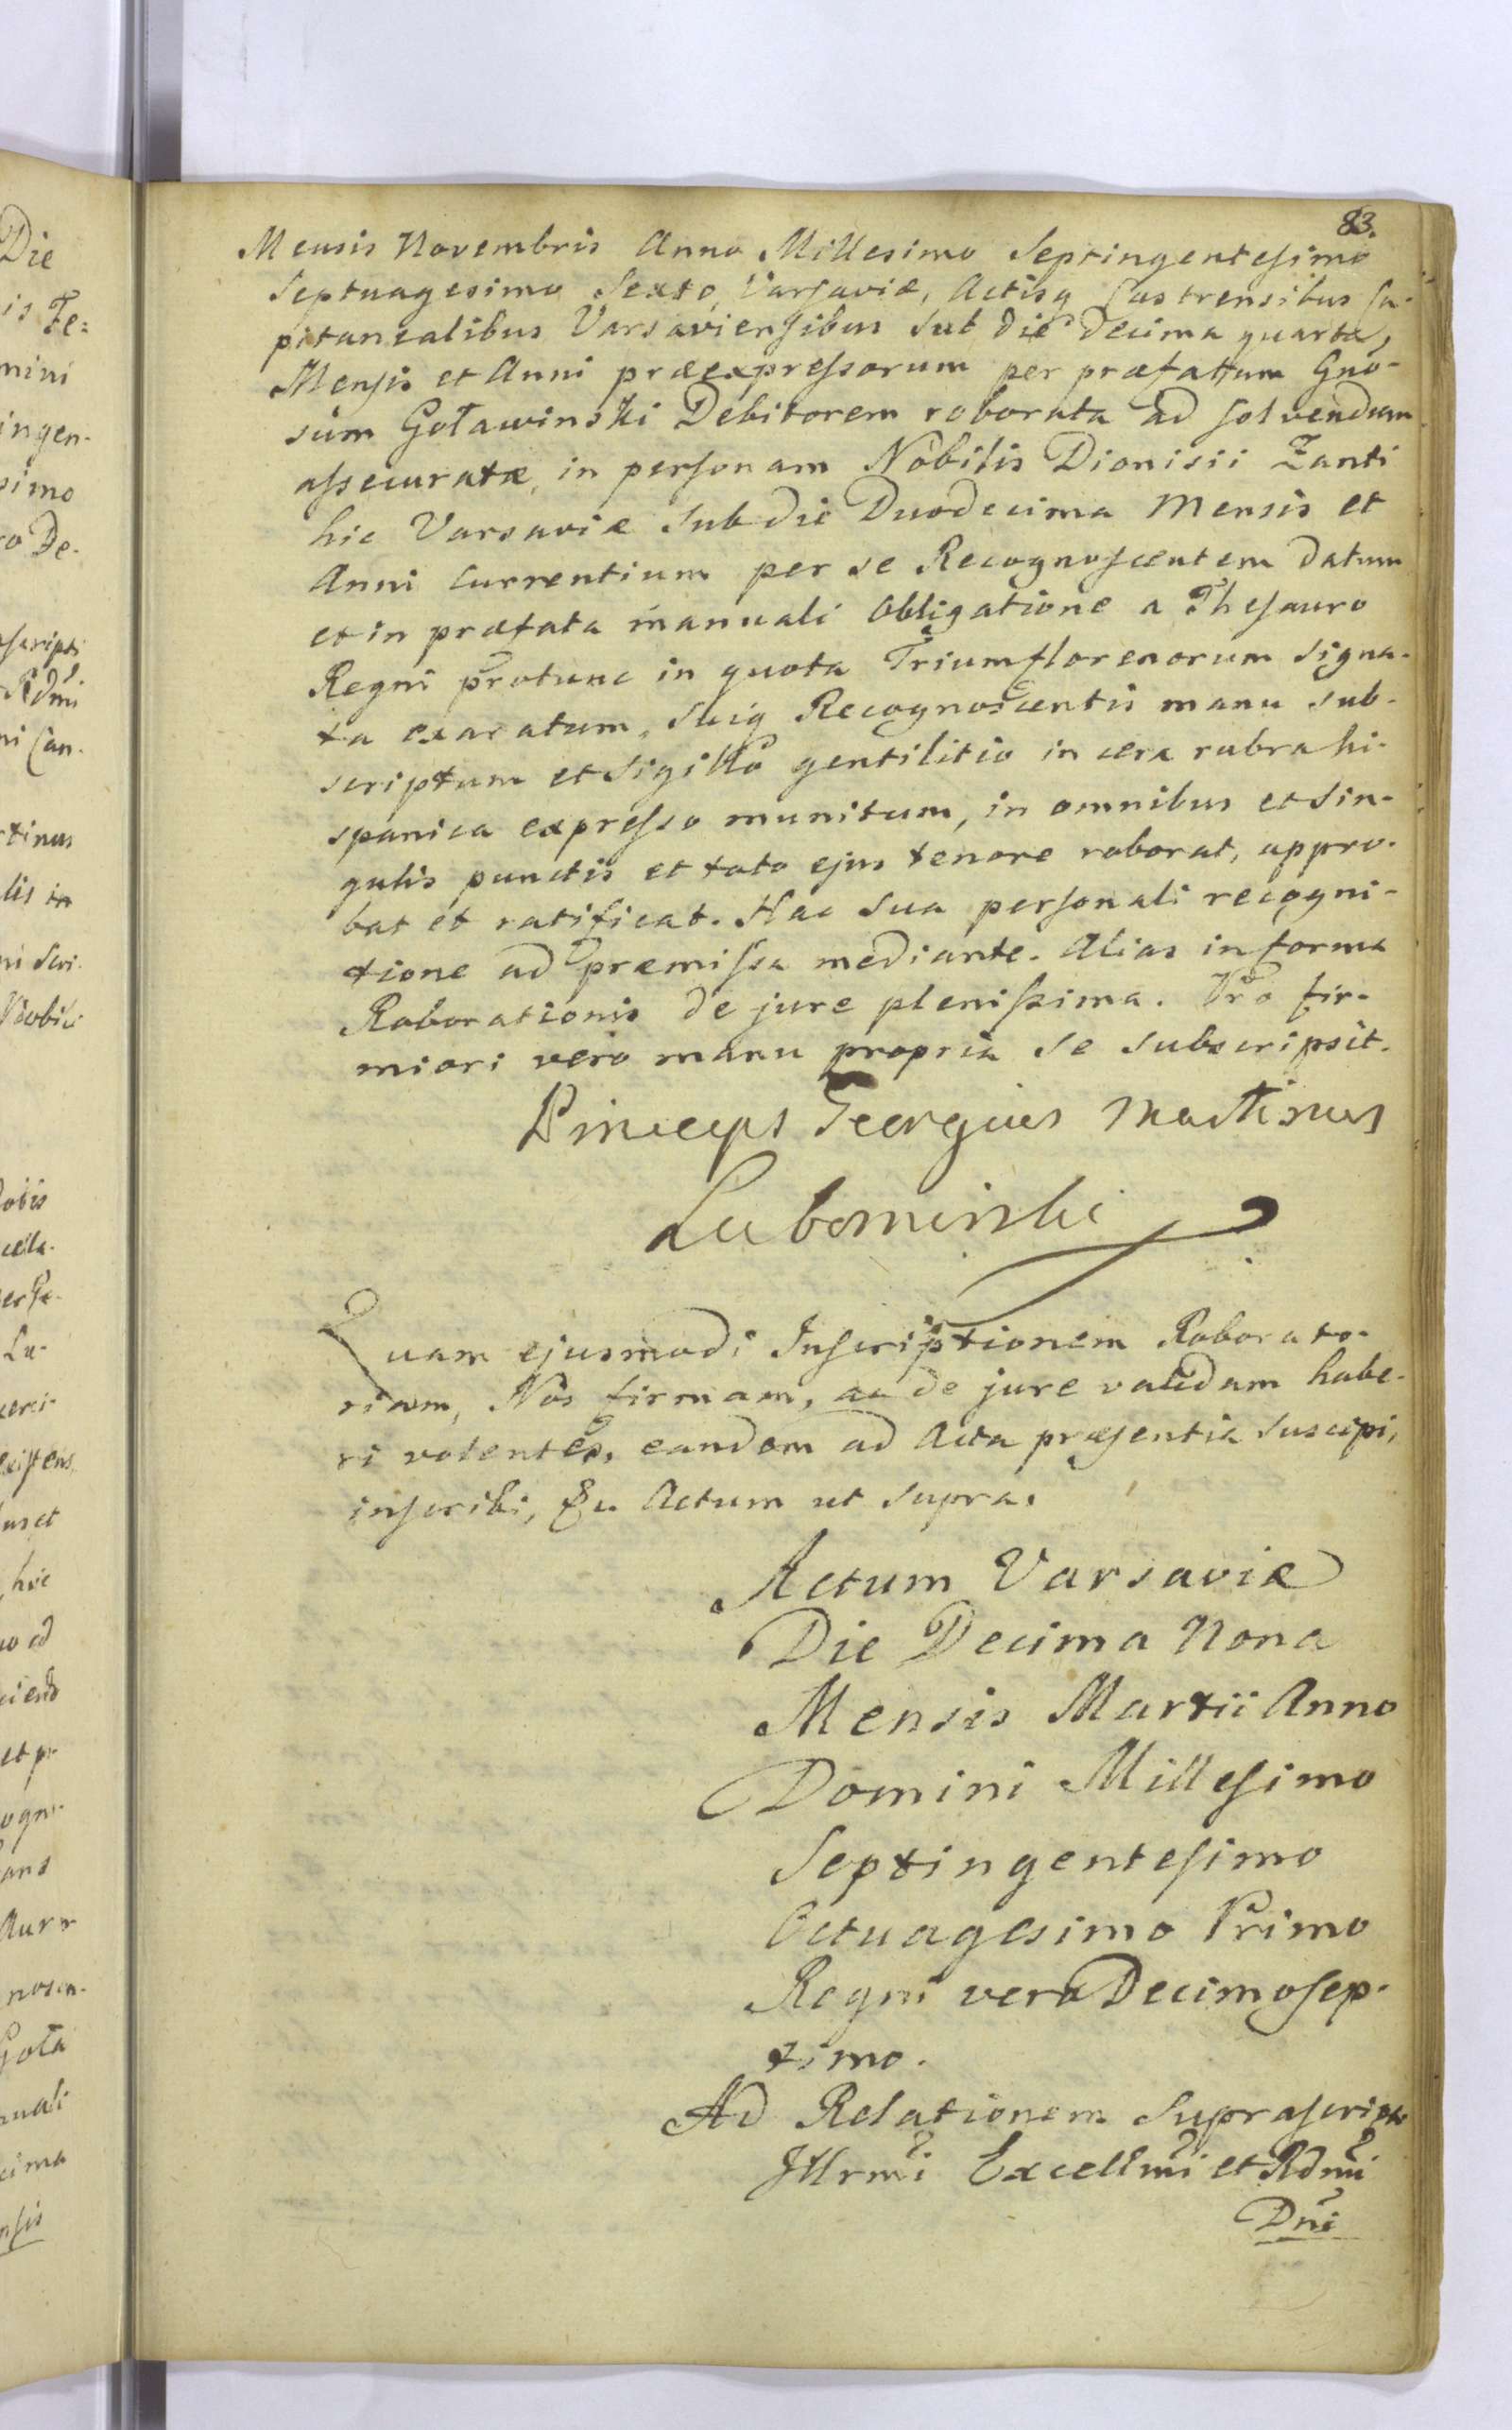 83.
Mensis Novembris Anno Millesimo Septingentesimo
Septuagesimo Sexto, Varsaviæ, Actisq Castrensibus Ca-
pitanealibus Varsaviensibus sub die Decima quarta,
Mensis et Anni præexpressorum per præfatum Gno-
sum Goławinski Debitorem roborata ad solvendum
assecuratæ, in personam Nobilis Dionisii Zanti
hic Varsaviæ sub die Duodecima Mensis et
Anni currentium per se Recognoscentem datum
et in præfata manuali Obligatione a Thesauro
Regni protunc in quota Trium florenorum signa-
ta exaratum, suiq Recognoscentis manu sub-
scriptum et Sigillo gentilitio in cera rubra hi-
spanica expresso munitum, in omnibus et sin-
gulis punctis et toto ejus tenore roborat, appro-
bat et ratificat. Hac sua personali recogni-
tione ad præmissa mediante. Alias in forma
Roborationis de jure plenissima. Pro fir-
miori vero manu propria se subscripsit.
Princeps Georgius Martinus
Lubomirski
Quam ejusmodi Inscriptionem Roborato-
riam, Nos firmam, ac de jure validam habe-
ri volentes, eandem ad Acta præsentia suscipi,
inscribi, &c. Actum ut supra.
Actum Varsaviæ
Die Decima Nona
Mensis Martii Anno
Domini Millesimo
Septingentesimo
Octuagesimo Primo
Regni vero Decimosep-
timo.
Ad Relationem Suprascripti
Illrmi Excellmi et Rdmi
Dni
Die
is Fe:
mini
ingen-
simo
ro De-
Rdmi
ni Can-
rtinus
lis in
ni Scri-
Nobili
La-
existens
hic
et pr-
Goła
nuali
cima
nsis